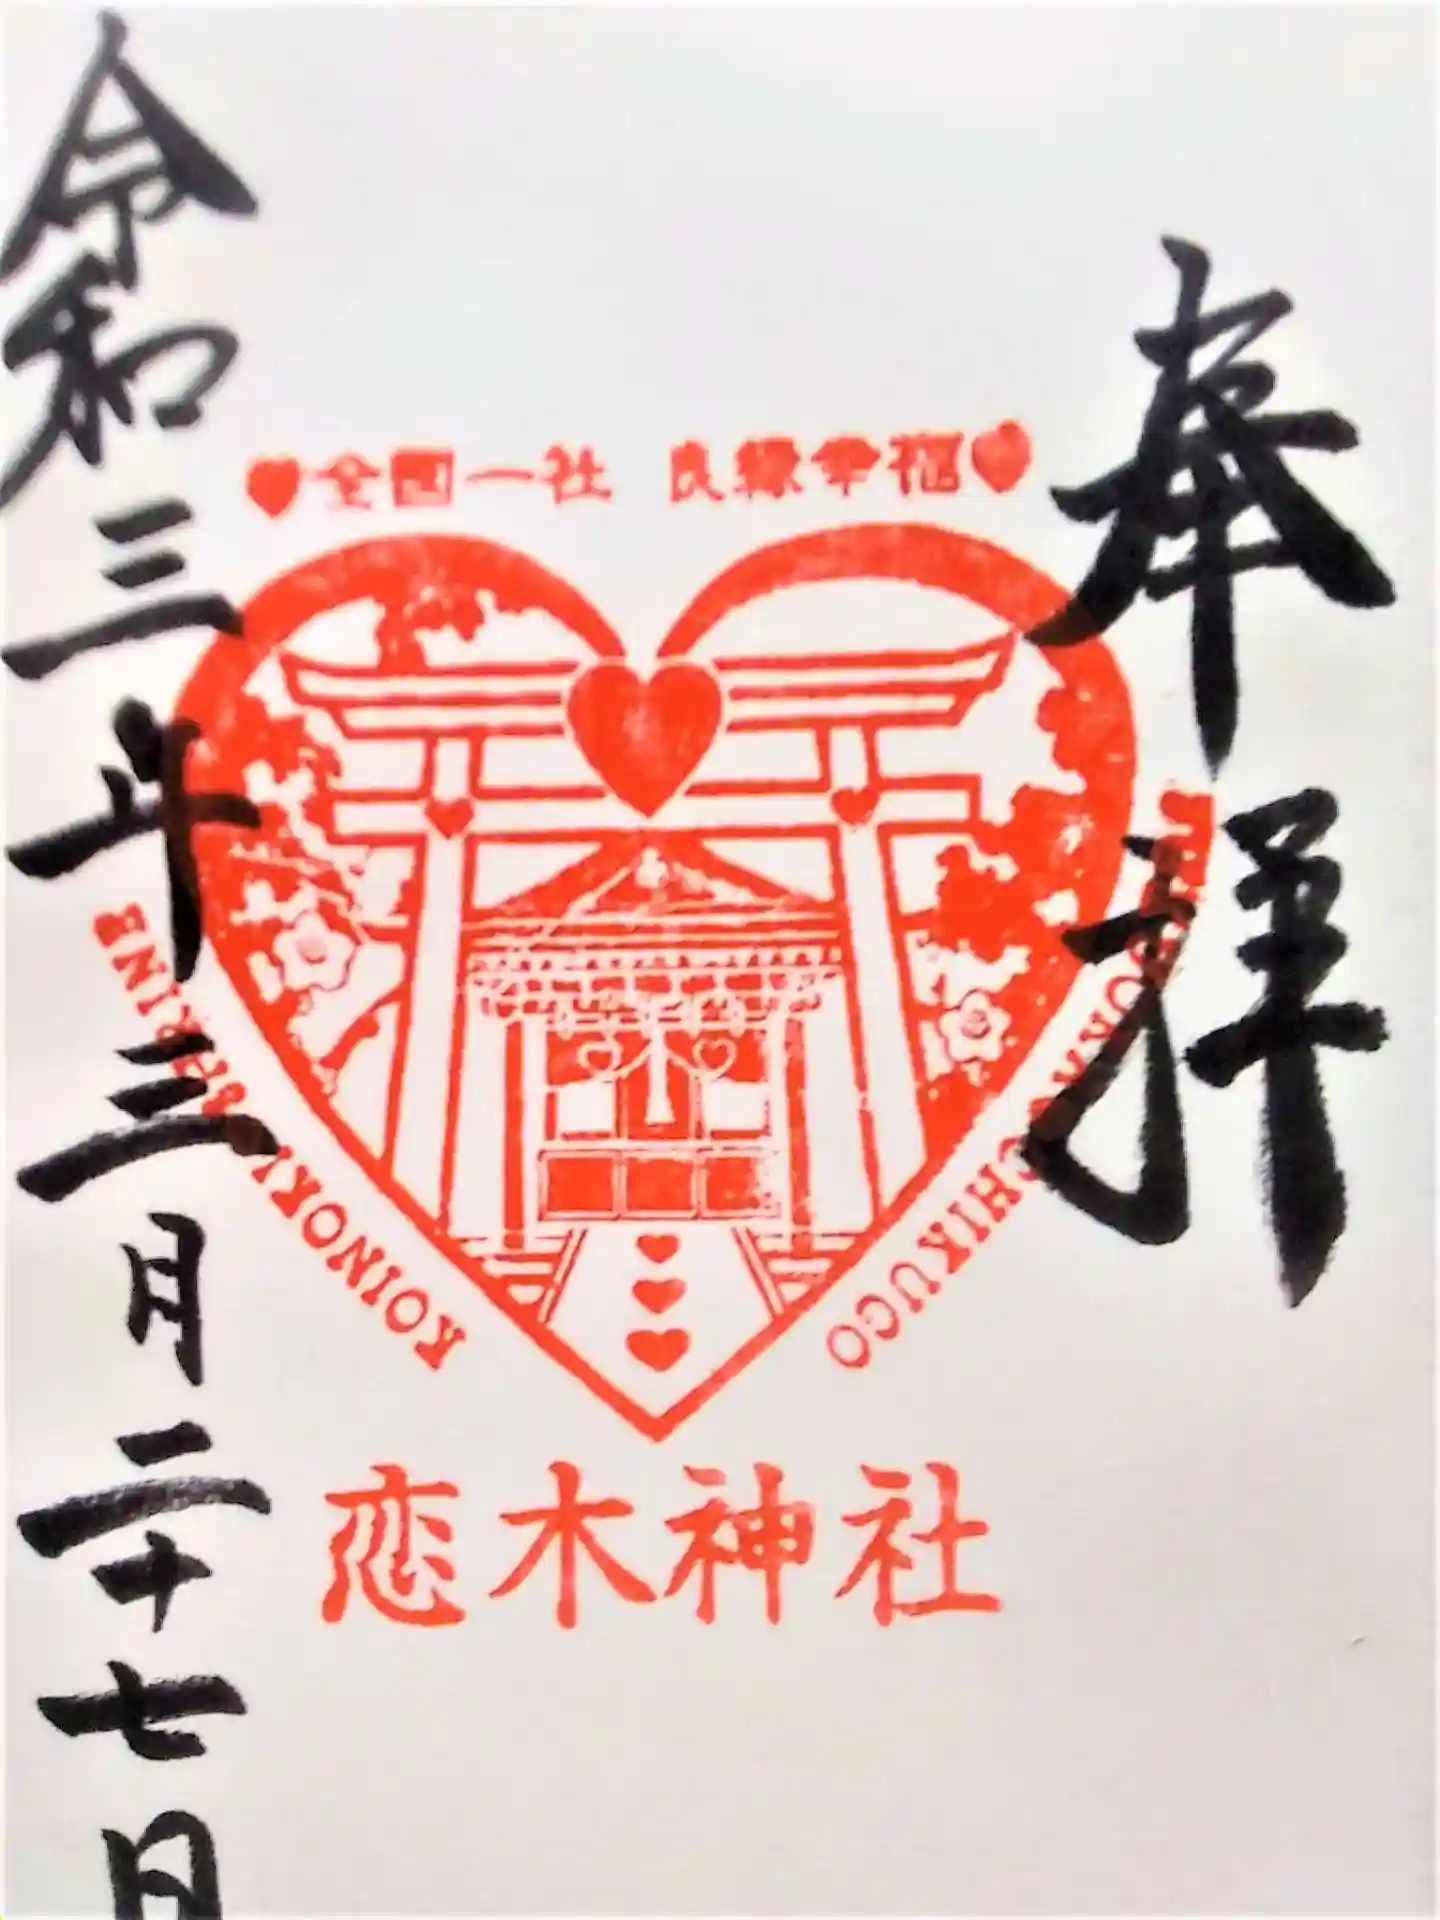 奉拝
全国一社 良縁幸福
KOINOKI SHRINE
CHIKUGO
恋木神社
令和三年三月二十七日